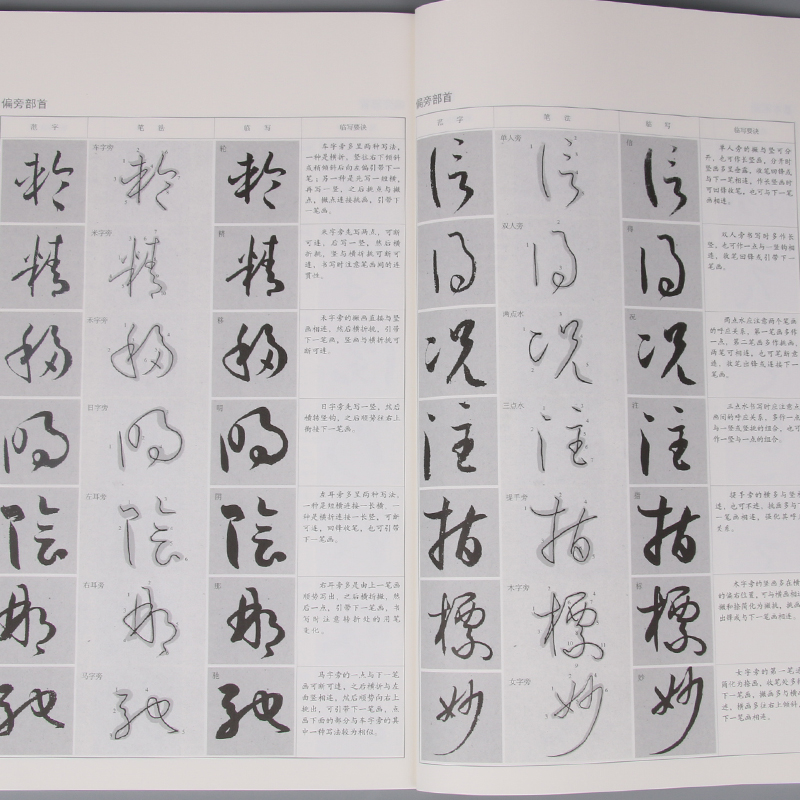 偏旁部首
范字 笔法 临写 临写要诀
车字旁
轮
车字旁多呈两种写法，
一种是横折，竖往右下倾斜
及稍倾斜后向左偏引带下一
笔；另一种是先写一短横，
再写一竖，之后挑点与撇
点，撇点连接挑画，引带下
一笔画。
米字旁
精
米字旁先写两点，可断
可连，后写一竖，然后横
折挑，竖与横折挑可断可
连，书写时注意笔画间的连
贯性。
禾字旁
移
禾字旁的撇画直接与竖
画相连，然后横折挑，引带
下一笔画，竖画与横折挑可
断可连。
日字旁
明
日字旁先写一竖，然后
横转竖钩，之后顺势往右上
衔接下一笔画。
左耳旁
阴
左耳旁多呈两种写法，
一种是短横连接一长横，一
种是横折连接一长竖，可断
可连，回锋收笔，也可引带
下一笔画。
右耳旁
那
右耳旁多是由上一笔画
顺势写出，之后横折撇，然
后一点，引带下一笔画，书
写时注意转折处的用笔
变化。
马字旁
驰
马字旁的一点与下一笔
画可断可连，之后横折与左
面竖相连，然后顺势向右上
挑出，可引带下一笔画，点
画下面的部分与车字旁的其
中一种写法较为相似。
偏旁部首
范字 笔法 临写 临写要诀
单人旁
信
单人旁的撇与竖可分
开，也可作长竖画，分开时
可回锋收笔，也可与下一笔
画相连。
双人旁
得
双人旁书写时多作长
竖，也可作一点与一竖钩相
连，收笔回锋或引带下一
笔画。
两点水
况
两点水应注意两个笔画
的呼应关系，第一笔画多作
一点，第二笔画多作挑画，
两笔可相连，也可笔断意
连，收笔出锋或连接下一
笔画。
三点水
注
三点水书写时应注意点
画间的呼应关系，多作一点
与一竖或竖挑的组合，也可
作一竖与一点的组合。
提手旁
指
提手旁的横多与竖
关系。
木字旁
标
木字旁的竖画多在横
的偏右位置，可与横画相
撇和捺简化为撇挑，挑画
出锋或与下一笔画相连。
女字旁
妙
女字旁的第一笔
简化为捺画，收笔处多
下一笔画，撇画多与横
连，横画多往右上倾斜，
下一笔画相连。